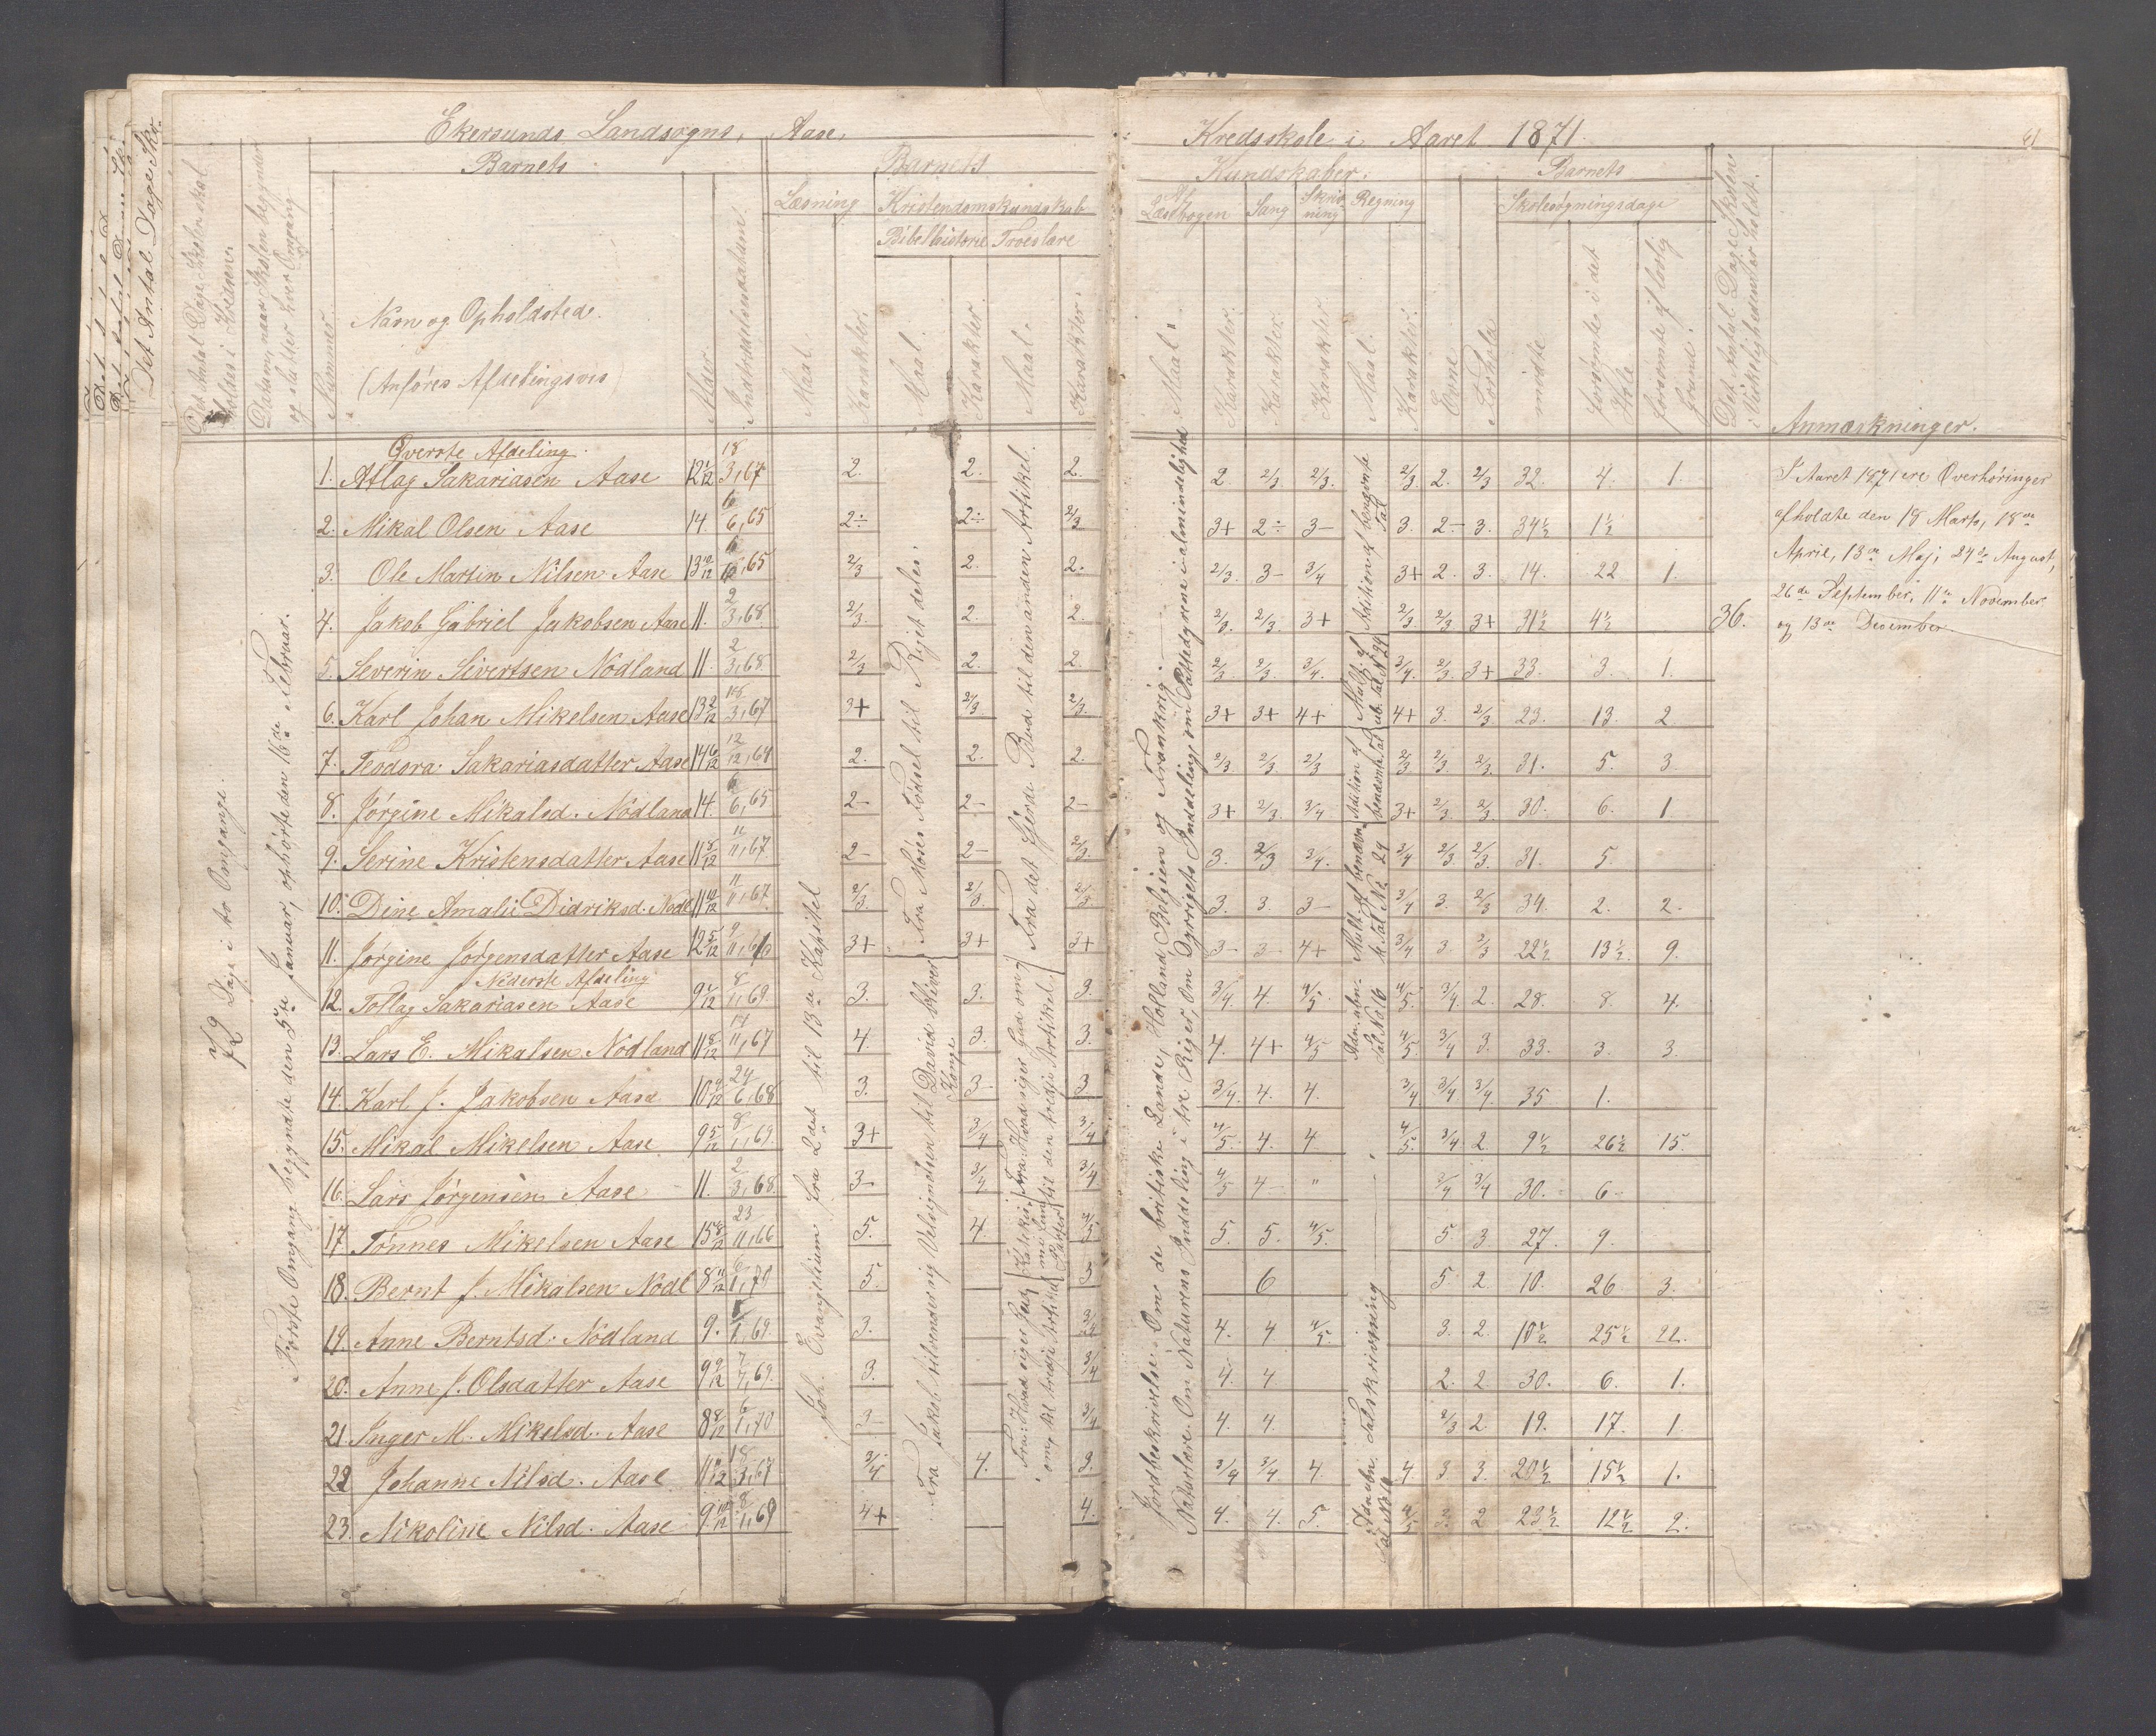 Ekersunds Landsogns, Aase,
Kredsskole i Aaret 1871.
61
Det Antal Dage Sko-
Det Antal Dage Skolen skal holdes i Kredsen.
Datum, naar Skolen begynder og slutter hver Omgang
Barnets
Nummer.
Navn og Opholdsted.
(Anføres Afdelingsvis)
Alder.
Indtrædelsesdatum.
Barnets
Læsning
Kristendomskundskab
Bibelhistorie Troeslære
Maal.
Karakter.
Maal.
Karakter.
Maal.
Karakter.
Kundskaber.
Af Læsebogen
Sang
Skrivning
Regning
Maal.
Karakter.
Karakter.
Karakter
Maal.
Karakter.
Barnets
Evne
Forhold
Skolesøgningsdage
mødte
forsømte i det Hele
forsømte af lovlig Grund.
Det Antal Dage Skolen i Virkeligheden er holdt.
Anmærkninger.
72 Dage i to Omgange.
Første Omgang begyndte den 5te Januar, ophørte den 16de Februar.
Øverste Afdeling.
1. Atlag Sakariasen Aase 12 1/12 18/3, 67 2. 2. 2. 2 2/3 2/3. 2/3 2. 2/3 32. 4. 1.
2. Mikal Olsen Aase 14. 6/6, 65 2÷ 2÷ 2/3 3+ 2÷ 3- 3. 2- 3. 34½ 1½
3. Ole Martin Nilsen Aase 13 10/12 65 2/3 2. 2. 2/3. 3- 3/4 3+ 2. 3. 14. 22 1.
4. Jakob Gabriel Jakobsen Aase 11. 2/3, 68. 2/3. 2. 2. 2/3. 2/3. 3+ 2/3. 2/3 3+ 31½ 4½ 36.
5. Severin Sivertsen Nodland 11. 2/3, 68. 2/3 2. 2. 2/3 2/3. 3/4. 3/4. 2/3. 3+ 33. 3. 1.
6. Karl Johan Mikelsen Aase 13 2/12 18/3, 67 3+ 2/3 2/3. 3+ 3+ 4+ 4+ 3. 2/3 23. 13. 2
7. Teodora Sakariasdatter Aase 14 6/12 12/12, 64 2. 2. 2. 2/3. 2/3. 2/3 2/3 2/3. 2/3. 31. 5. 3.
8. Jørgine Mikalsd. Nodland 14. 6/6, 65 2- 2- 2- 3+ 2/3. 3/4 3+ 2/3 2/3. 30. 6. 1.
9. Serine Kristensdatter Aase 11 8/12 11/11, 67 2- 2- 2/3. 3. 2/3 3/4. 3/4 2/3 2/3. 31. 5.
10. Dine Amalie Didriksd. Nodl 11 10/12 11/11, 67. 2/3. 2/3. 2/3 3. 3. 3- 3/4 3. 2/3 34. 2. 2.
11. Jørgine Jørgensdatter Aase 12 5/12 3+ 3+ 3+ 3- 3- 4+ 3/4 3 2/3 22½ 13½ 9.
Nederste Afdeling
12. Tollag Sakariasen Aase 9 7/12 8/11 69. 3. 3. 3. 3/4 4. 4/5. 4/5. 3/4. 2. 28. 8. 4.
13. Lars E. Mikalsen Nodland 11 8/12 14/11, 67 4. 3. 3. 4. 4+ 4/5 4/5. 3/4 3. 33. 3. 3.
14. Karl J. Jakobsen Aase 10 9/12 24/6, 68 3. 3- 3 3/4. 4. 4. 3/4 3/4 3/4. 35 1.
15. Mikal Mikelsen Aase 9 5/12 8/1, 69. 3+ 3/4 3/4 4/5. 4. 4 4/5. 3/4 2. 9½ 26½ 15.
16. Lars Jørgensen Aase 11. 2/3, 68. 3- 3/4 3/4 4/5 4 " 3/4 3/4 30. 6-
17. Tønnes Mikelsen Aase 15 23/11, 66 5. 4. 4/5 5. 5. 4/5. 5. 3 27. 9.
18. Bernt J. Mikalsen Nodl 8 11/12 6/1, 70 5. 5 6 5. 2. 10. 26 3.
19. Anne Berntsd. Nodland 9. 1, 69. 3. 3/4 4. 4 4/5. 3. 2. 10½ 25½ 22.
20. Anne J. Olsdatter Aase 9 9/12 7/4, 69. 3. 3/4 4. 4 2. 2. 30. 6. 1.
21. Inger M. Mikelsd. Aase 8 8/12 6/1, 70 3- 3/4 4. 4. 2/3 2. 19. 17. 1.
22 Johanne Nilsd. Aase 11 18/3, 67 3/4 4. 3. 3/4 3/4 4. 4 3. 3. 20½ 15½ 1.
23. Nikoline Nilsd. Aase 9 10/12 8/1, 69 4+ 4. 4. 4. 5. 4/5 3. 2 23½ 12½ 2.
Joh. Evangelium fra 2det til 13de Kapitel
Fra Moses Fødsel til Riget deles.
Fra Jakob tilvender sig Velsignelsen til David bliver Konge
Fra det fjerde Bud til den anden Artikel.
Fra: Hvad siger Gud om til den tredje Artikel
Jordbeskrivelse: Om de britiske Lande, Holland, Belgien og Frankrig.
Naturlære: Om Naturens Inddeling i tre Riger, Om Dyrrigets Inddeling, om Pattedyrene i almindelighed
Adition af benevnte Tal
Mult. af ub. Tal N° 24
Adition af benevnte Tal
Mult. af benevnte Tal N° 24
Adn. ubn. Tal N° 16
Talskrivning
I Aaret 1871 ere Overhøringer
afholdte den 18 Marts, 18de
April, 13de Maj, 24de August,
26de September, 11te November
og 13de December.